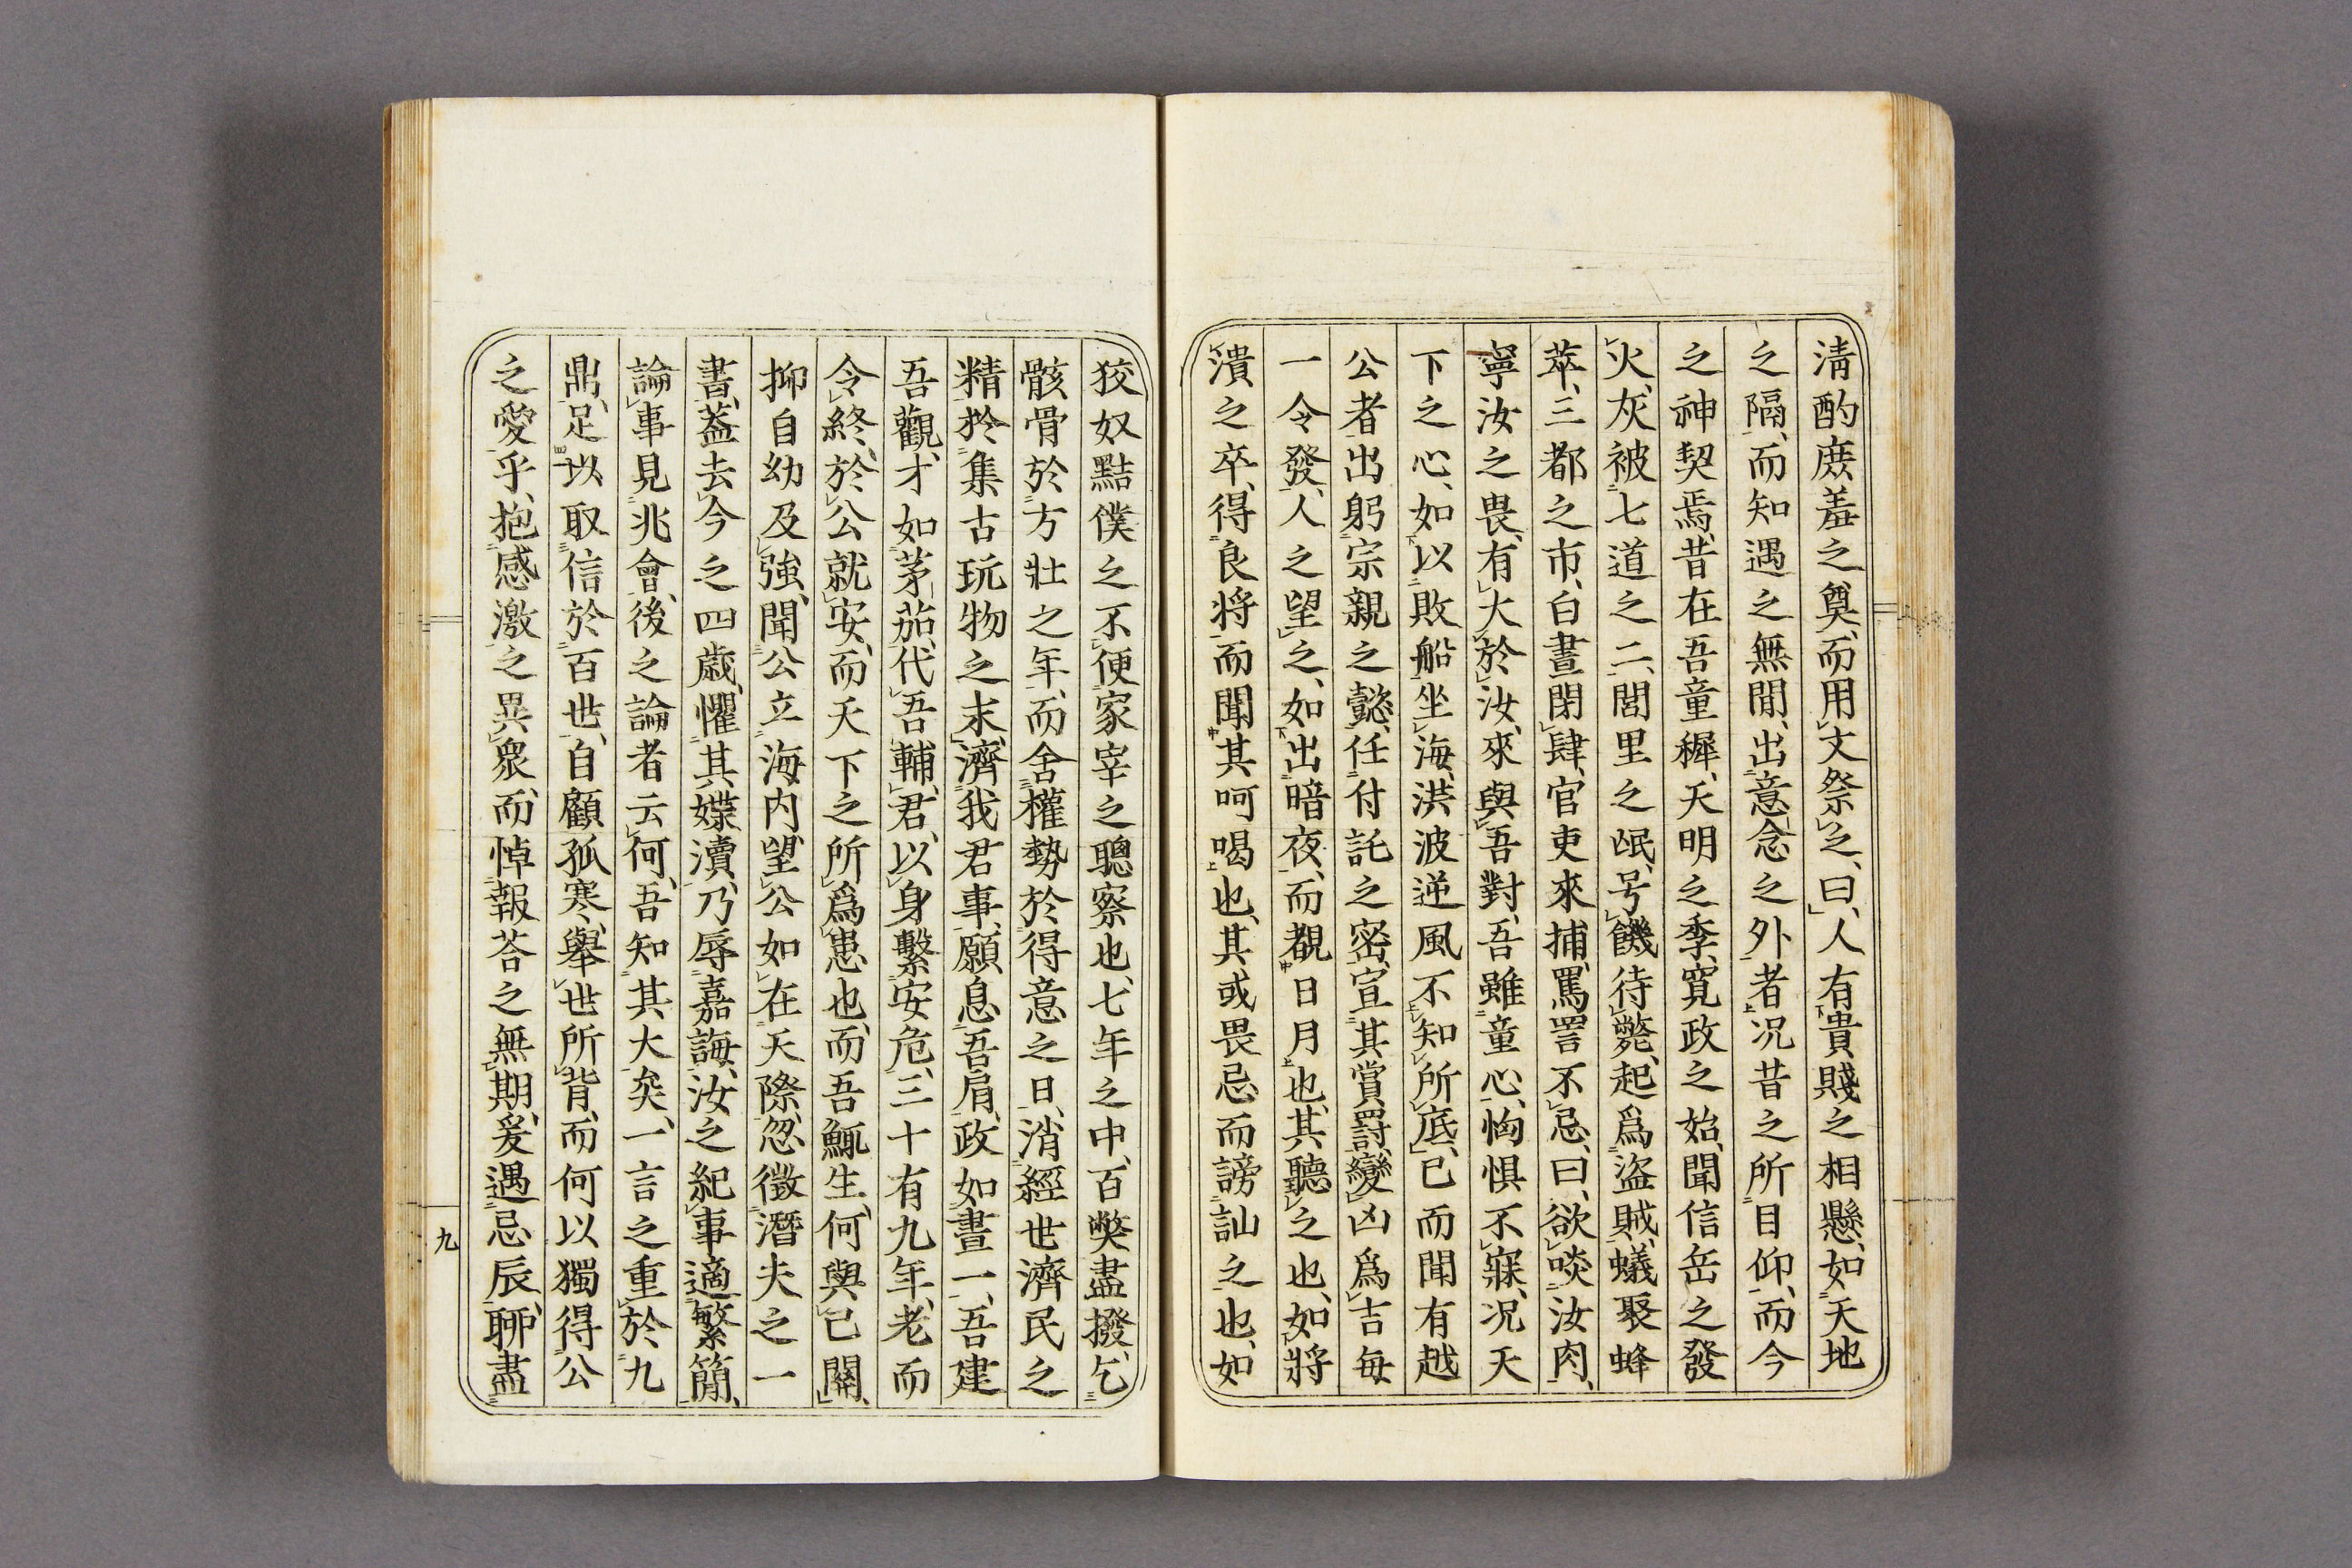 清酌庶羞之奠、而用文祭之、曰、人有貴賤之相懸、如天地
之隔、而知遇之無間、出意念之外者、况昔之所目仰、而今
之神契焉、昔在吾童穉、天明之季、寬政之始、聞信岳之發
火、灰被七道之二、閭里之氓、号饑待斃、起爲盜賊、蟻聚蜂
萃、三都之市、白晝閉肆、官吏來捕、罵詈不忌、曰、欲啖汝肉、
寧汝之畏、有大於汝、來與吾對、吾雖童心、恟惧不寐、况天
下之心、如以敗船坐海、洪波逆風不知所底、已而聞有越
公者、出躬宗親之懿、任付託之密、宣其賞罸、變凶爲吉每
一令發、人之望之、如出暗夜、而覩日月也、其聽之也、如將
潰之卒、得良将而聞其呵喝也、其或畏忌而謗訕之也、如
狡奴黠僕之不便家宰之聰察也、七年之中、百獘盡撥、乞
骸骨於方壯之年、而舍權勢於得意之日、消經世濟民之
精於集古玩物之末、濟我君事、願息吾肩、政如畫一、吾建
吾觀、才如茅茹、代吾輔君、以身繫安危、三十有九年、老而
令終、於公就安、而天下之所爲患也、而吾鯫生、何與己關、
抑自幼及強、聞公立海内望、公如在天際、忽徵潛夫之一
書、葢去今之四歳、懼其媟瀆、乃辱嘉誨、汝之紀事適繁簡、
論事見兆會、後之論者云何、吾知其大矣、一言之重於九
鼎、足以取信於百世、自顧孤寒、擧世所背、而何以獨得公
之愛乎、抱感激之異衆、而悼報荅之無期、爰遇忌辰、聊盡
九